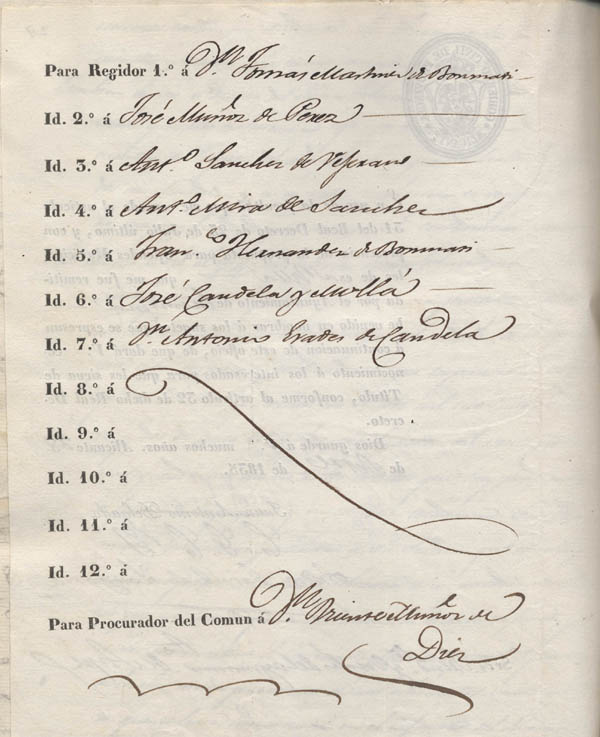 Para Regidor 1.º á D.n Tomás Martinez de Bonmati
Id. 2.º á José Muñoz de Perez
Id. 3.º á Ant.º Sanchez de
Id. 4.º á Ant.º Mira de Sanchez
Id. 5.º á Fran.co Hernandez de Bonmati
Id. 6.º á José Candela y Mollá
Id. 7.º á D.n Antonio Brades de Candela
Id. 8.º á
Id. 9.º á
Id. 10.º á
Id. 11.º á
Id. 12.º á
Para Procurador del Comun á D.n Vicente Muñoz de
Diez